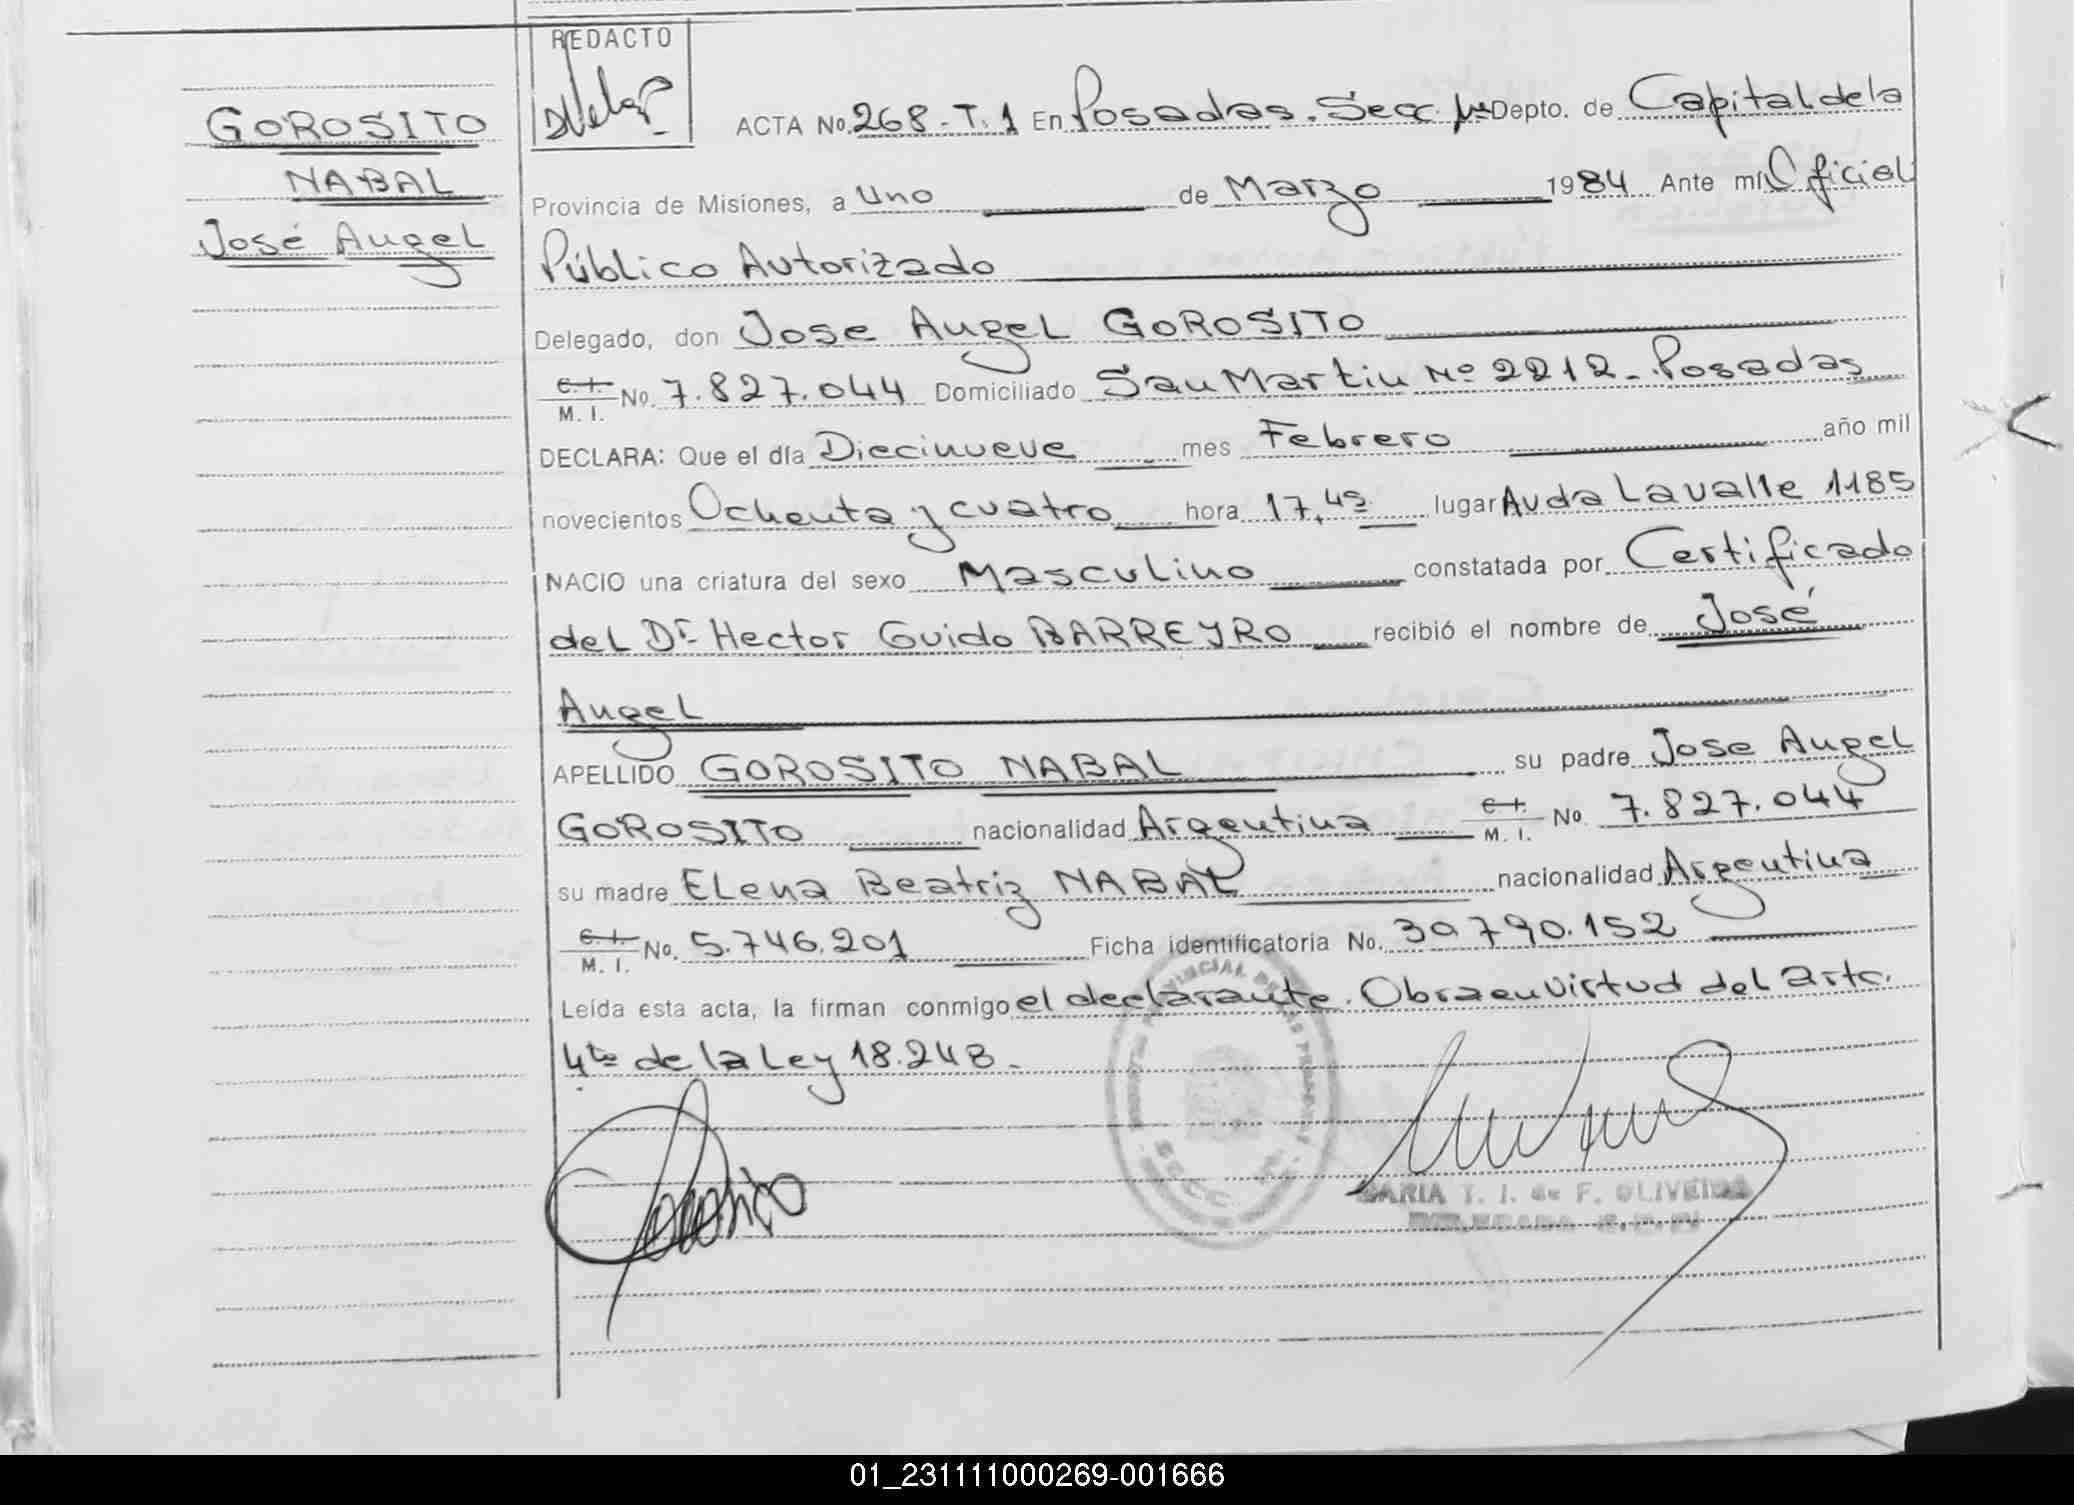 REDACTO
GOROSITO
NABAL
José Angel
ACTA No. 268-T.1 En Posadas. Secc. 1ra Depto. de Capital de la
Provincia de Misiones, a Uno de Marzo 1984 Ante mí Oficial
Público Autorizado
Delegado, don Jose Angel GOROSITO
C. I. M. I. No. 7.827.044 Domiciliado San Martin Nº 2212 - Posadas
DECLARA: Que el día Diecinueve mes Febrero año mil
novecientos Ochenta y cuatro hora 17,45 lugar Avda Lavalle 1185
NACIO una criatura del sexo Masculino constatada por Certificado
del Dr Hector Guido BARREYRO recibió el nombre de José
Angel
APELLIDO GOROSITO NABAL su padre Jose Angel
GOROSITO nacionalidad Argentina C. I. M. I. No. 7.827.044
su madre Elena Beatriz NABAL nacionalidad Argentina
C. I. M. I. No. 5.746.201 Ficha identificatoria No. 30.790.152
Leída esta acta, la firman conmigo el declarante. Obra en virtud del artc.
4to de la Ley 18.248.
MARIA T. I. de F. OLIVEIRA
01_231111000269-001666